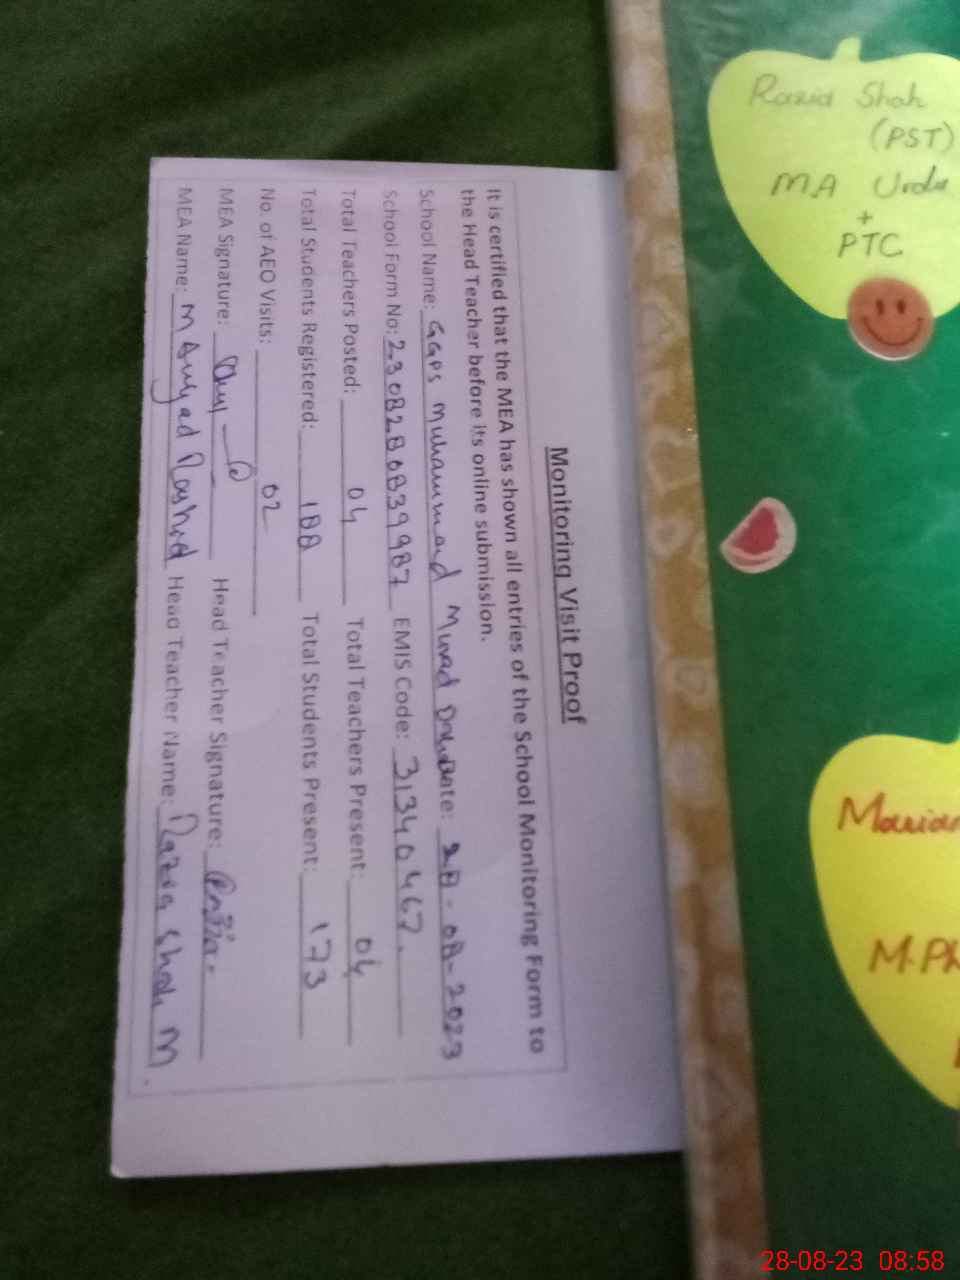 Monitoring Visit Proof
It is certified that the MEA has shown all entries of the School Monitoring Form to
the Head Teacher before its online submission.
School Name: GGPS Muhammad Murad Date: 28-08-2023
School Form No: 2308280839987 EMIS Code: 31340467.
Total Teachers Posted: 04 Total Teachers Present: 04
Total Students Registered: 188 Total Students Present: 173
No. of AEO Visits: 02
MEA Signature: Head Teacher Signature:
MEA Name: M Amjad Rashid Head Teacher Name: Razia Shah M
Razia Shah
(PST)
MA Urdu
+
PTC
M.Ph
28-08-23 08:58